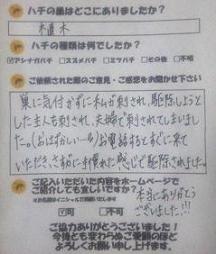 ハチの巣はどこにありましたか?
植木
ハチの種類は何でしたか?
☑アシナガバチ □スズメバチ □ミツバチ □その他 □不明
ご依頼された際のご意見・ご感想をお聞かせ下さい
巣に気付かずに私が刺され、駆除しようと
した主人も刺され、夫婦で刺されてしまいまし
た。(おはずかしい…)お電話するとすぐに来て
いただき、さすがに手慣れた感じで駆除されました。
本当にありがとうございました!!!
ご記入いただいた内容をホームページで
ご紹介しても宜しいですか?
☑可 □不可
ご協力ありがとうございました!
今後とも変わらぬご愛顧のほど
よろしくお願い申し上げます。